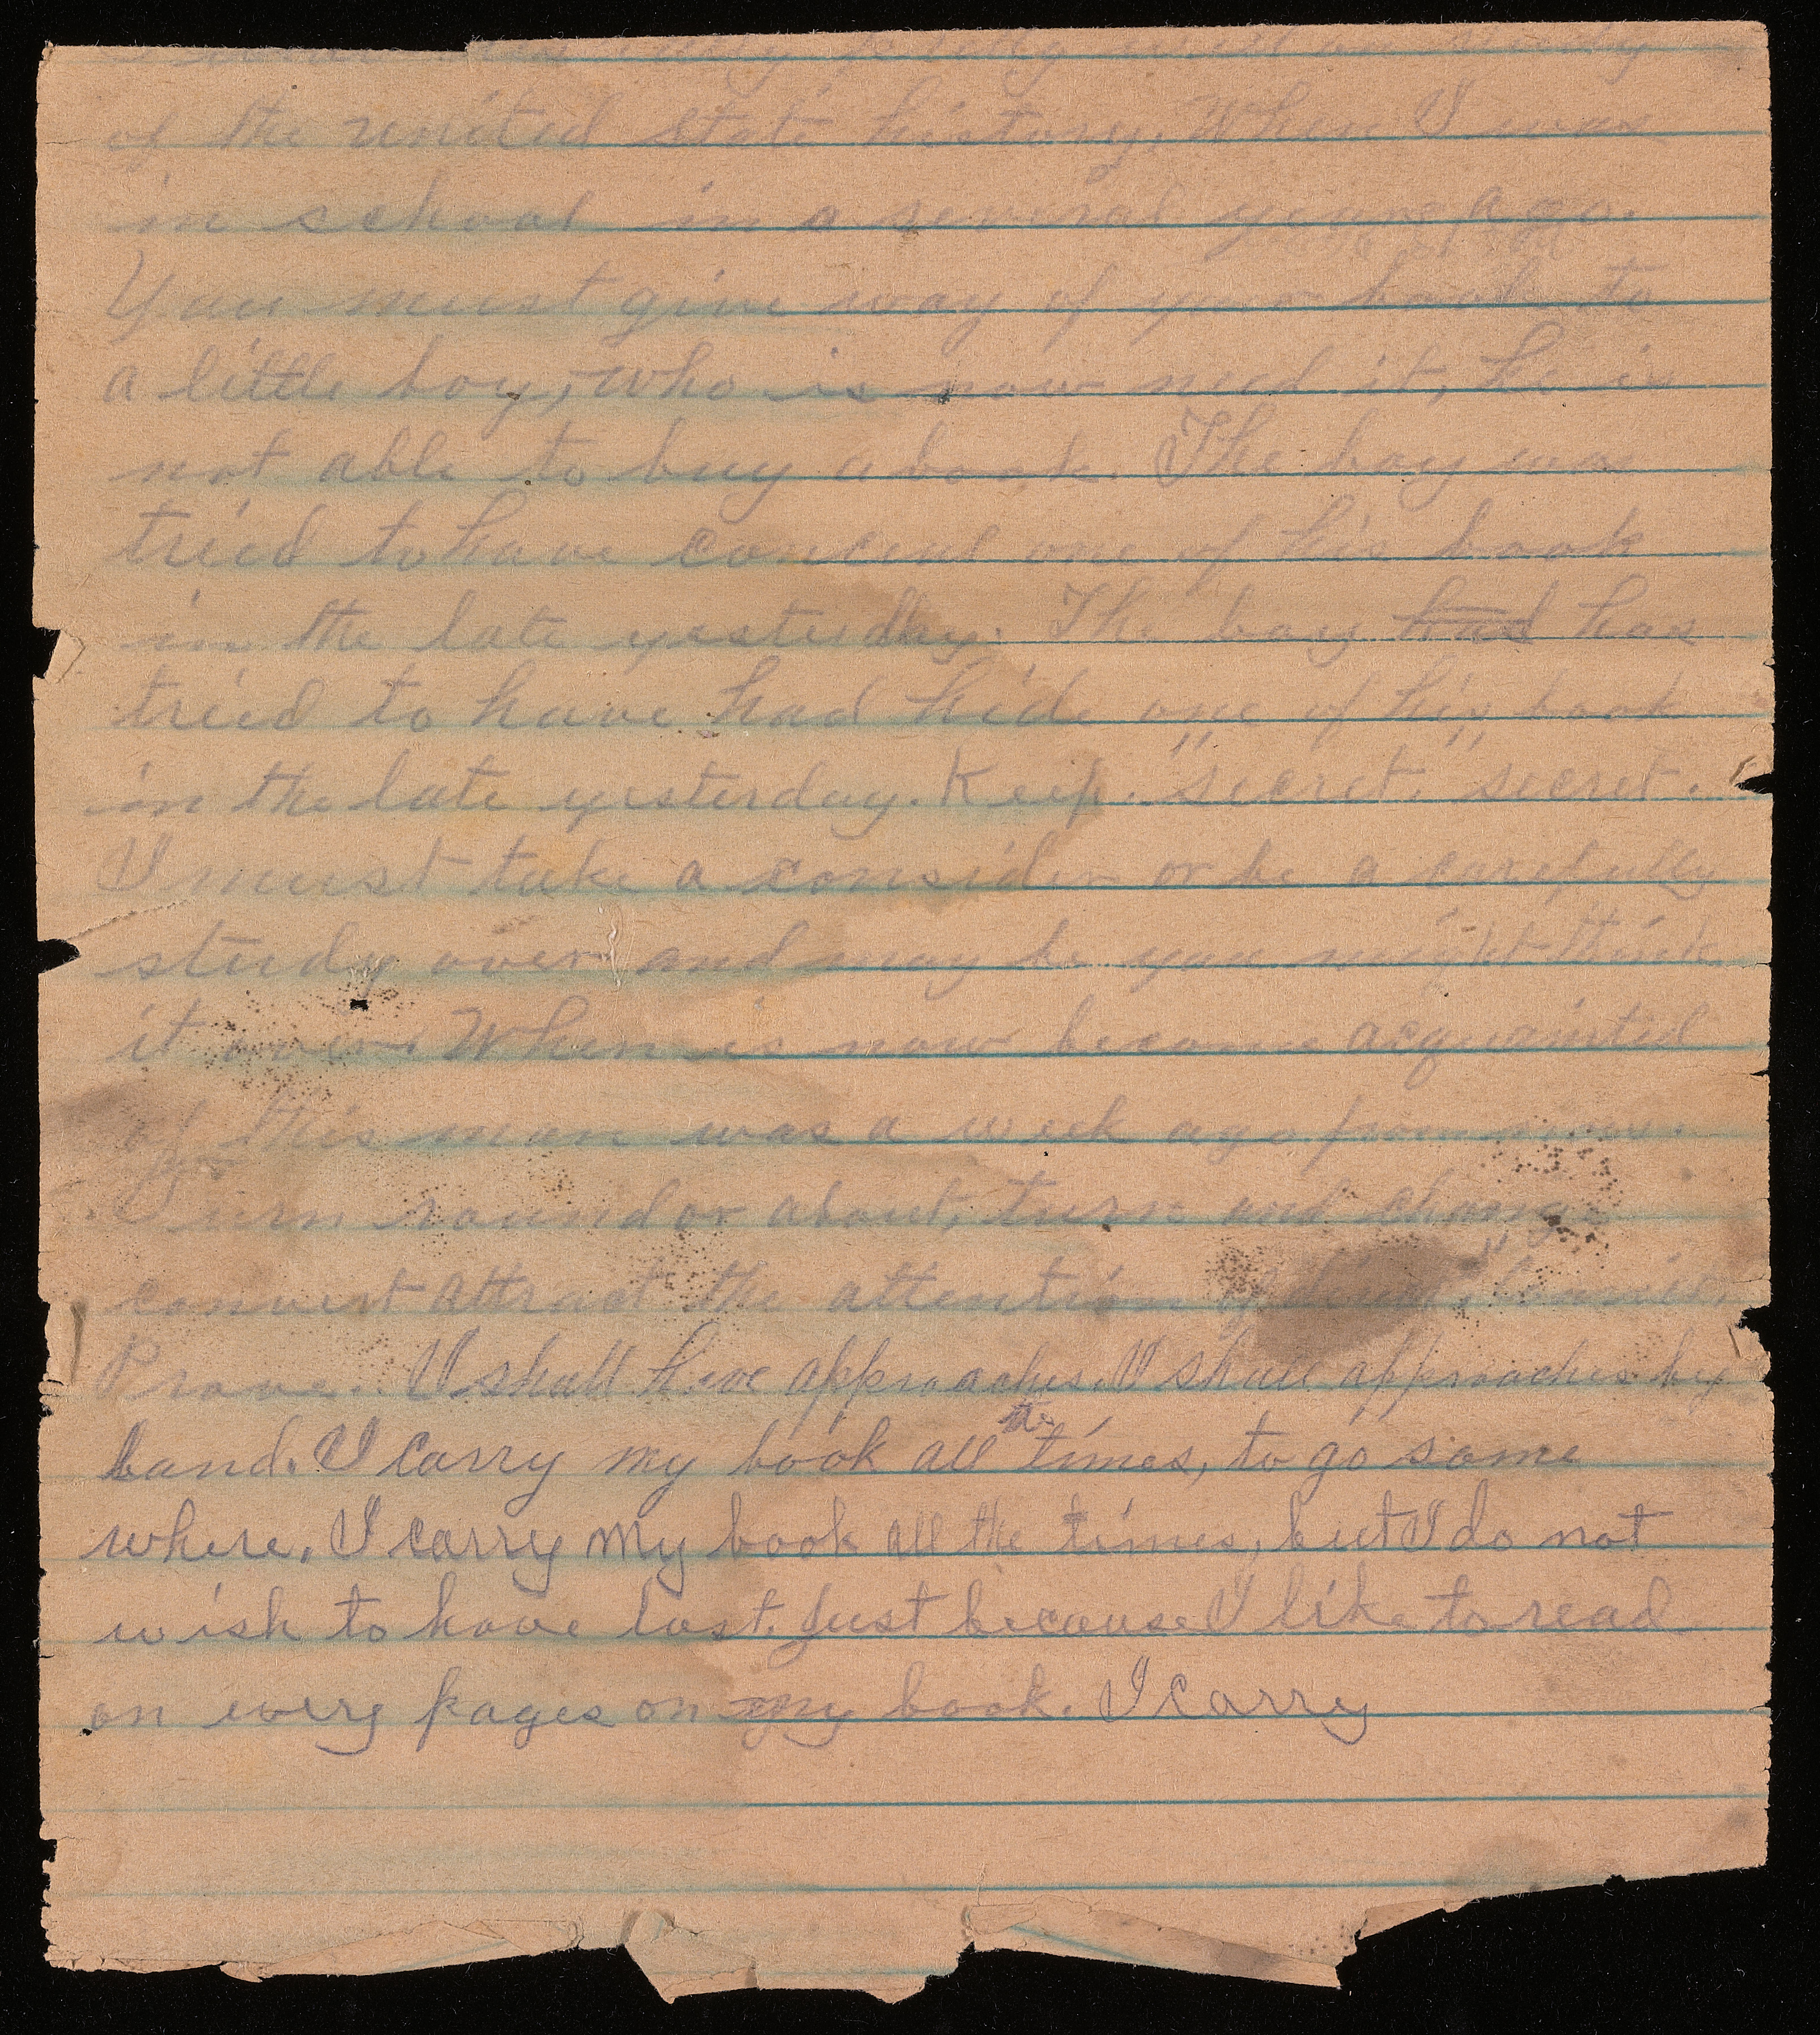 study
of the united state history. When I was
in school in a several years ago.
You must give way of your book to
a little boy, who is now need it, he is
not able to buy a book. The boy was
tried to have conceal one of his book
in the late yesterday. The boy had has
tried to have had hide one of his book
in the late yesterday. Keep. "secret." "secret.
I must take a consider or be a carefully
study over and may be you might think
it over. When is now become acquainted
of this man was a week ago from now.
Turn round or about, turn and change
convert attract the attention of
Prove. I shall have approaches. I shall approaches by
land. I carry my book all the times, to go some
where. I carry my book all the times, but I do not
wish to have lost. Just because I like to read
on every pages on my book. I carry